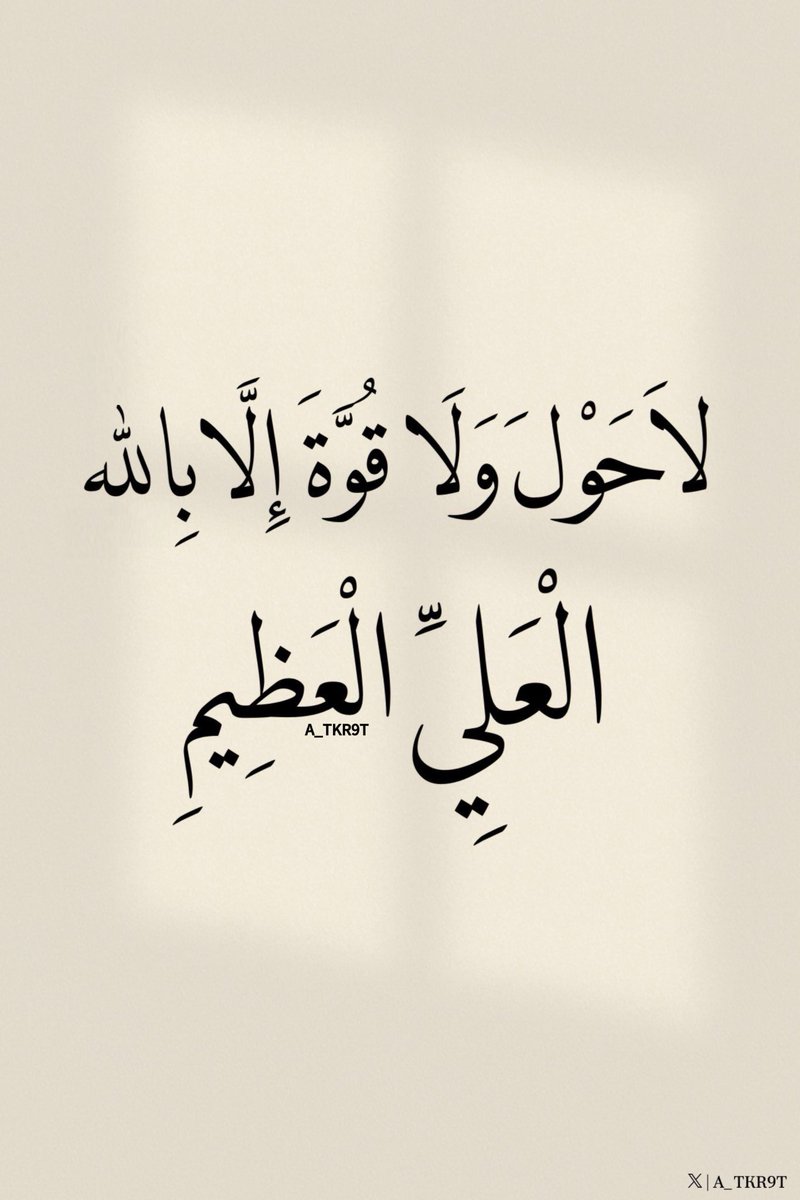 لَا حَوْلَ وَلَا قُوَّةَ إِلَّا بِالله
الْعَلِيِّ الْعَظِيمِ
A_TKR9T
𝕏 | A_TKR9T